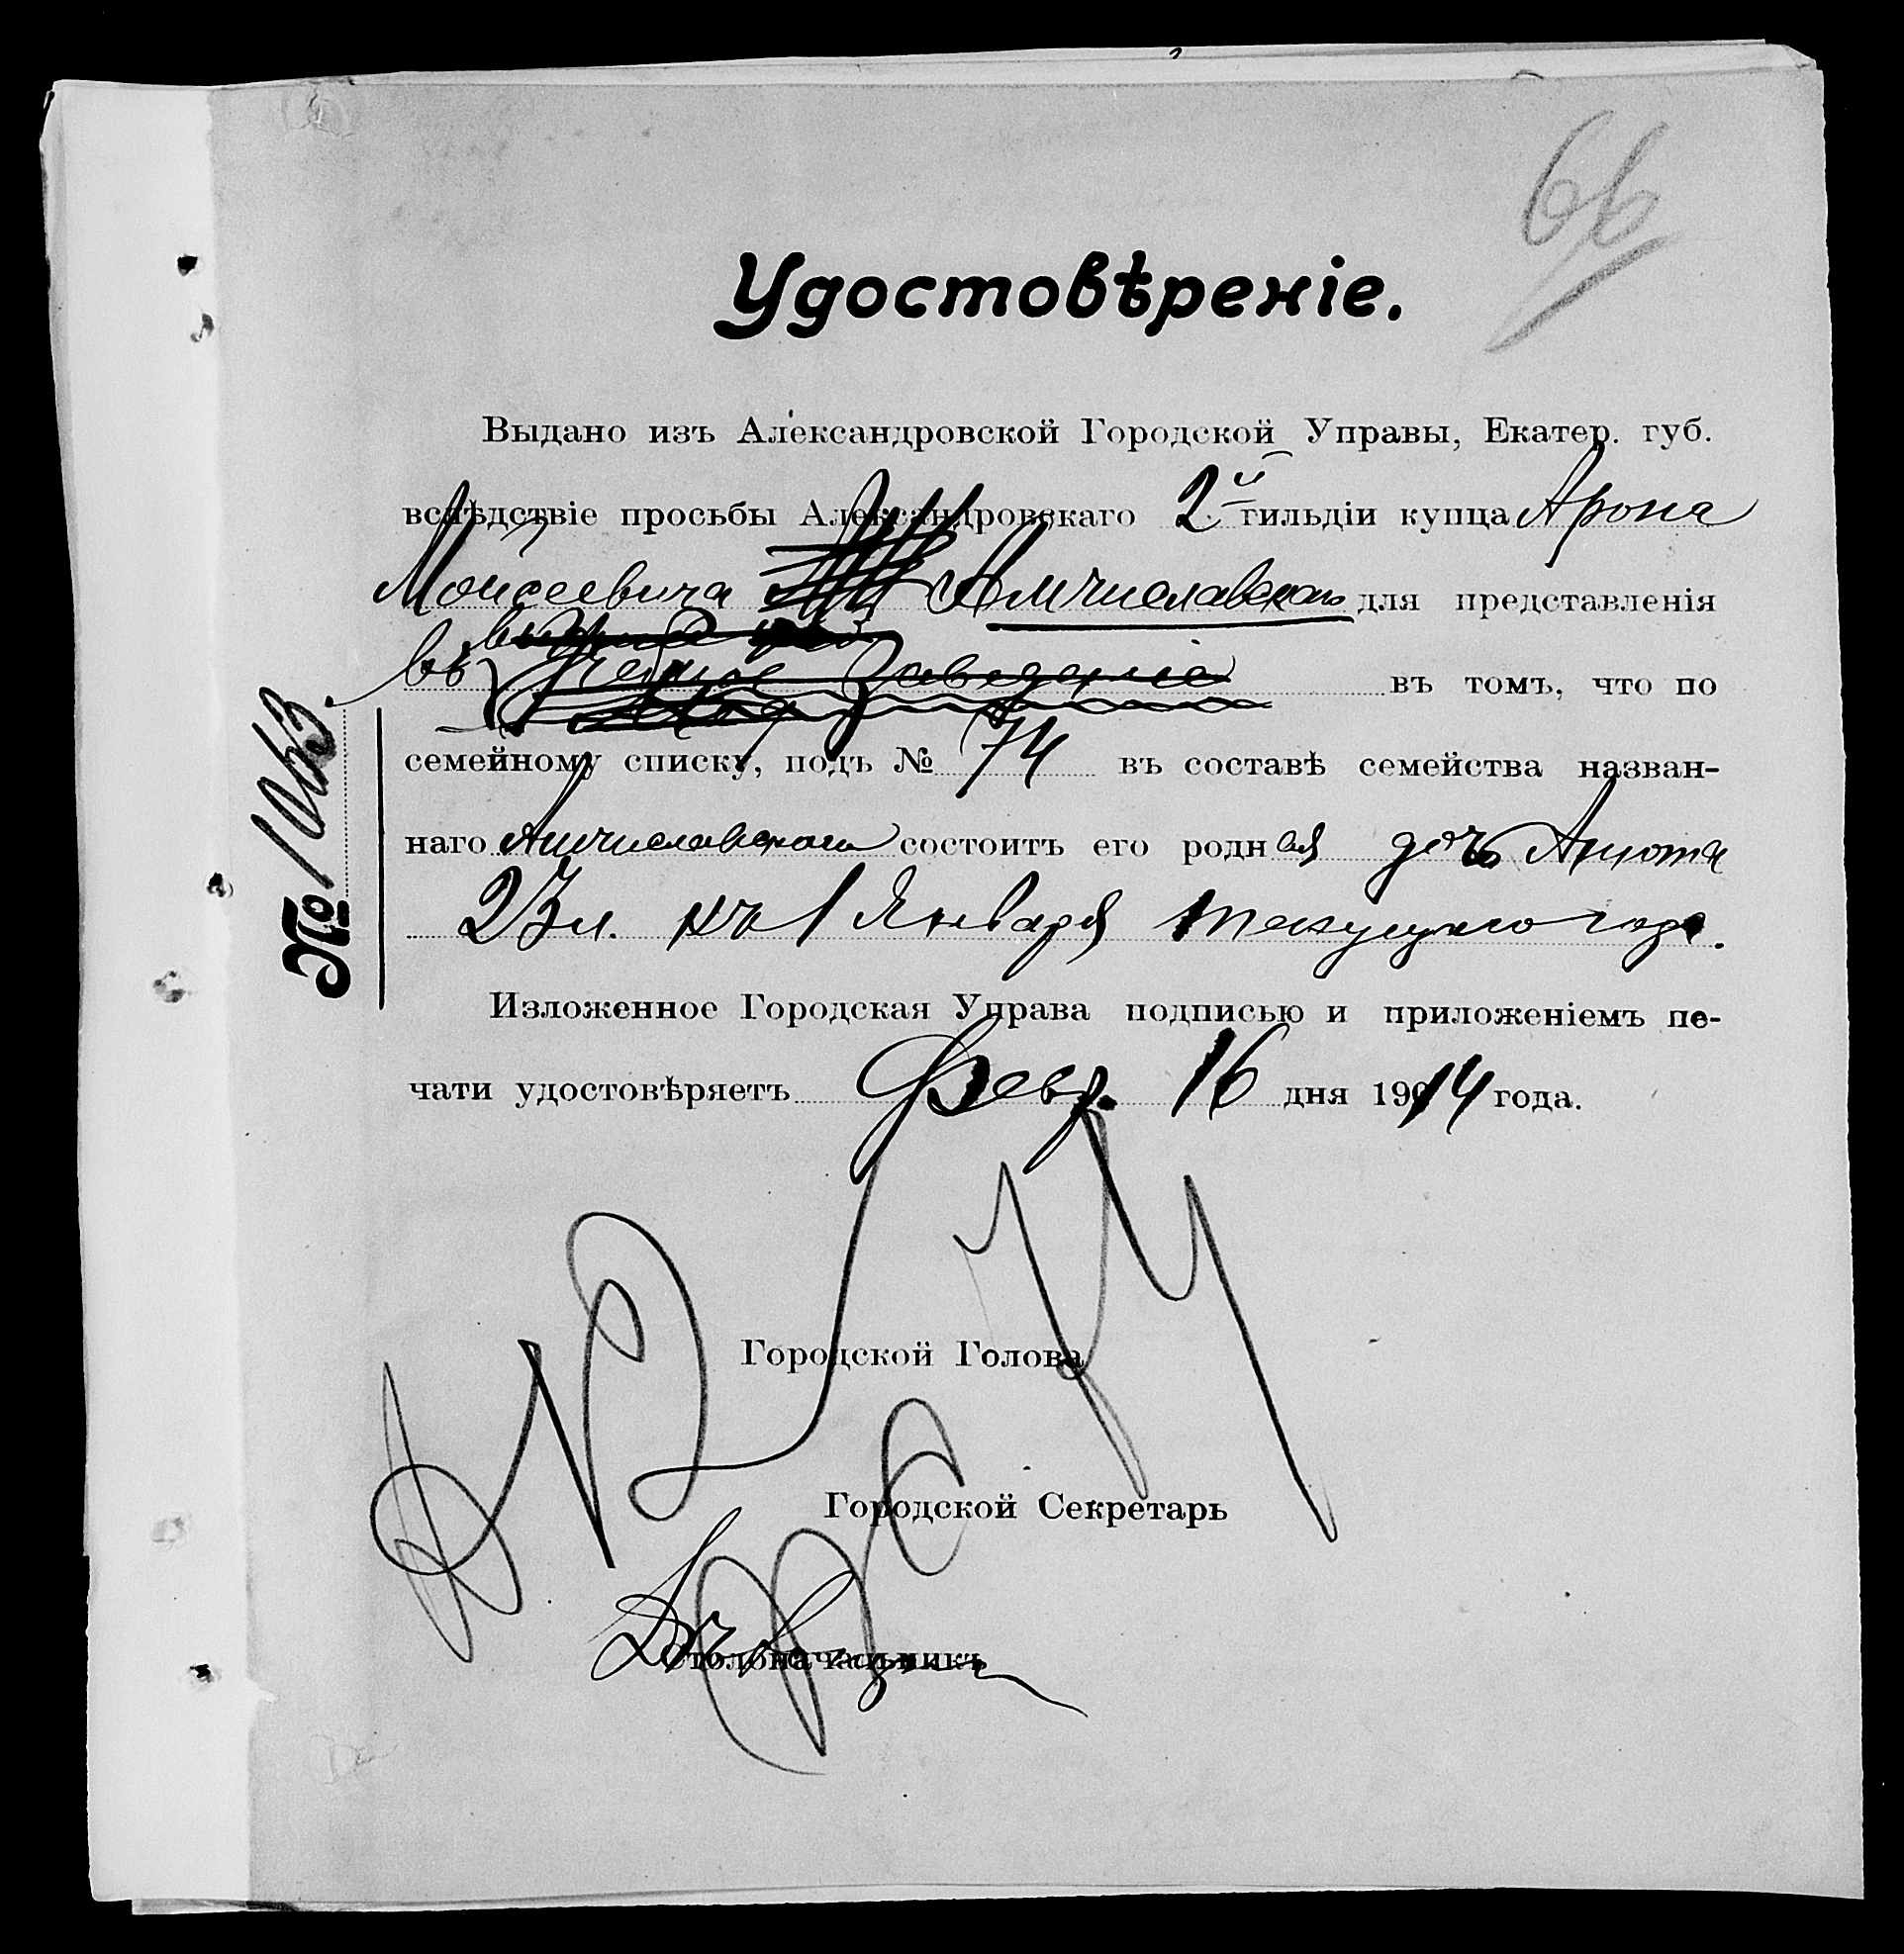 66
Удостовѣреніе.
Выдано изъ Александровской Городской Управы, Екатер. губ.
вслѣдствіе просьбы Александровскаго 2й гильдіи купца Арона
Моисеевича Амчиславскаго для представленія
въ учебное заведеніе въ томъ, что по
семейному списку, подъ № 74 въ составѣ семейства назван-
наго Амчиславскаго состоитъ его родная дочь Анюта
23 л. къ 1 Января текущаго года.
Изложенное Городская Управа подписью и приложеніемъ пе-
чати удостовѣряетъ Февр. 16 дня 1914 года.
№
Городской Голова
Городской Секретарь
Столоначальникъ